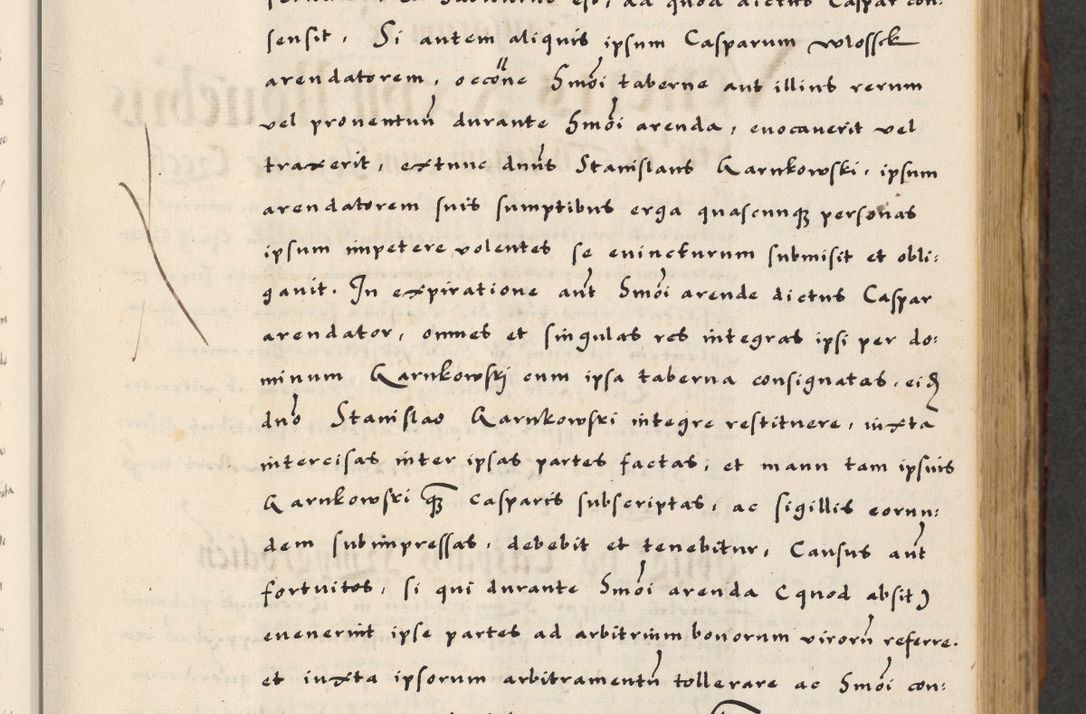 sensit. Si autem aliquis ipsum Casparum Wlossek
arendatorem, occõne Smõi taberne aut illius rerum
vel proventuũ durante Smõi arenda, evocaverit vel
traxerit, extunc dnũs Stanislaus Karnkowski, ipsum
arendatorem suis sumptibus erga quascunqꝫ personas
ipsum impetere volentes se evincturum submisit et obli:
gavit. In expiratione aũt Smõi arende dictus Caspar
arendator, omnes et singulas res integras ipsi per do:
minum Karnkowskj cum ipsa taberna consignatas, eiđ
dnõ Stanislao Karnkowski integre restituere, iuxta
intercisas inter ipsas partes factas, et manu tam ipsius
Karnkowski qꝫ Casparis subscriptas, ac sigillis eorun:
dem subimpressas, debebit et tenebitur, Causus aũt
fortuitos, si qui durante Smõi arenda (quod absit)
evenerint ipse partes ad arbitrium bonorum virorũ referre.
et iuxta ipsorum arbitramentũ tollerare ac Smõi con: